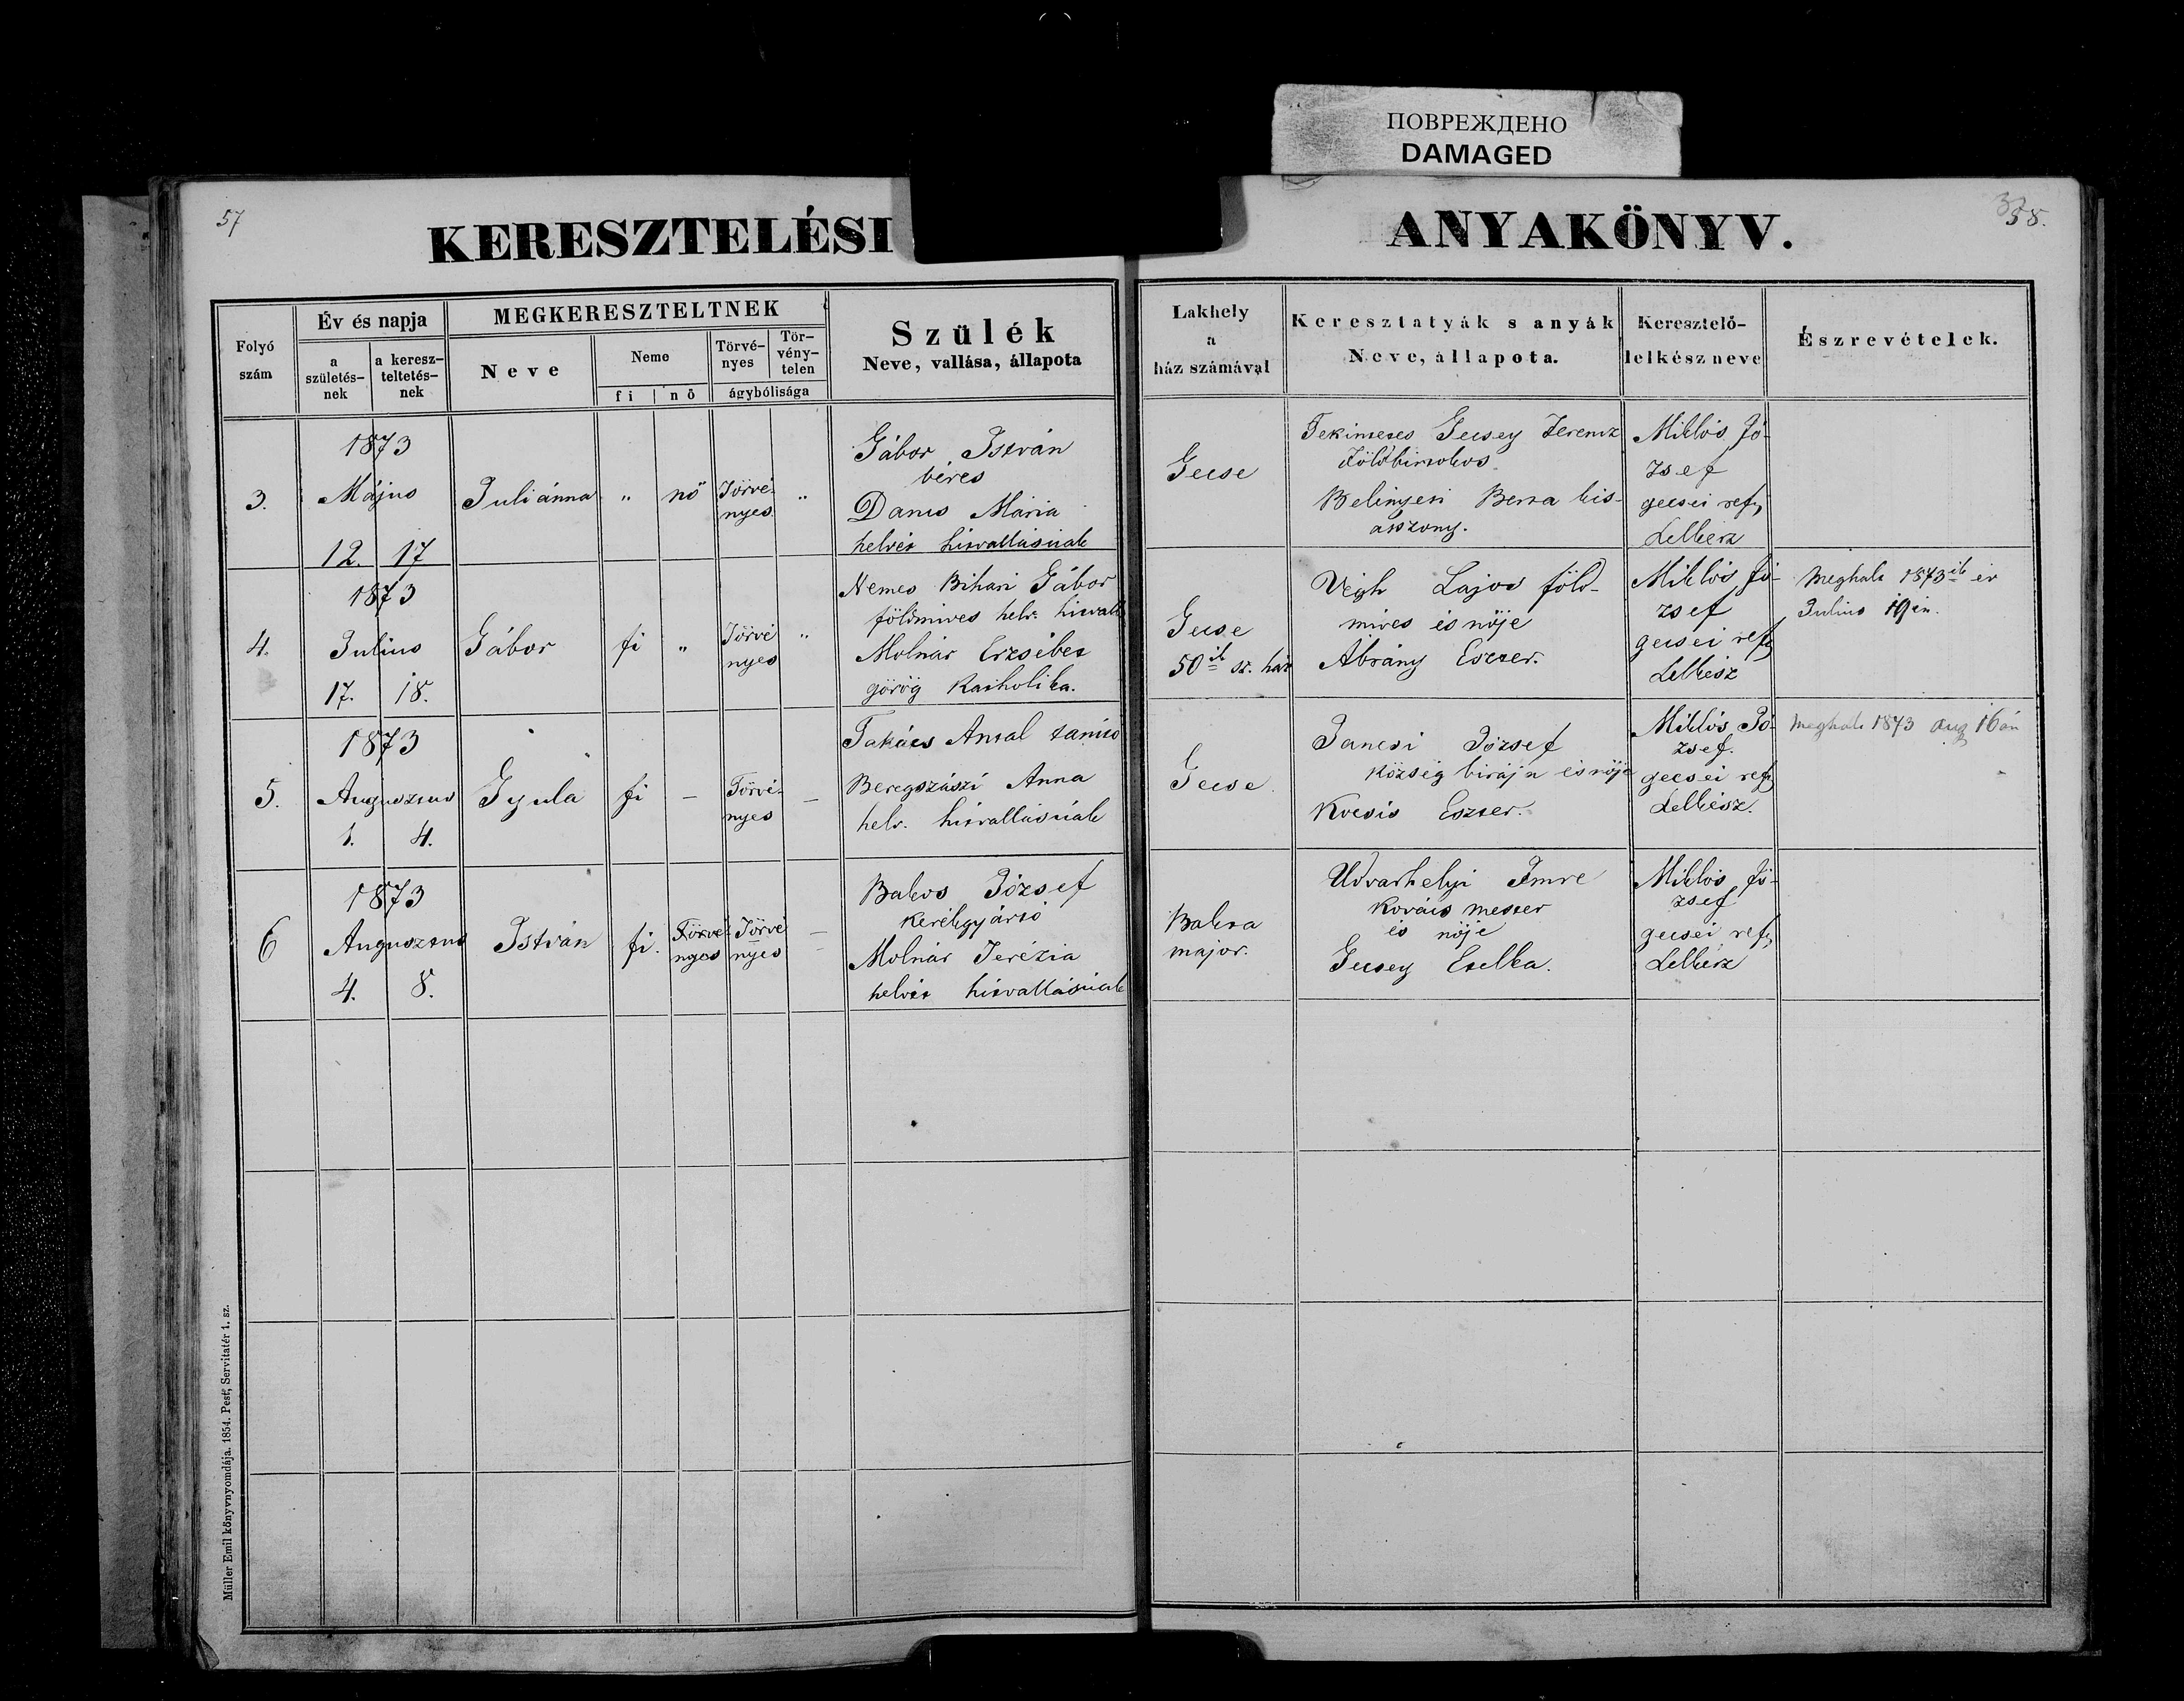 ПОВРЕЖДЕНО
DAMAGED
57
58.
KERESZTELÉSI ANYAKÖNYV.
Folyó szám
Év és napja
a születés-nek
a keresz-teltetés-nek
MEGKERESZTELTNEK
Neve
Neme
fi
nő
Törvé-nyes
Tör-vény-telen
ágybólisága
Szülék
Neve, vallása, állapota
Lakhely
a
ház számával
Keresztatyák s anyák
Neve, állapota.
Keresztelő-
lelkész neve
Észrevételek.
3.
1873
Május
12. 17
Juliánna
"
nő
Törvé-
nyes
"
Gábor István
béres
Danis Mária
helvét hitvallásuak
Gecse
Tekintetes Gecsey Ferencz
földbirtokos
Belinyesi Berta kis-
asszony.
Miklós Jó-
zsef
gecsei ref,
Lelkész
4.
1873
Julius
17. 18.
Gábor
fi
"
Törvé
nyes
"
Nemes Bihari Gábor
földmives helv. hitvall
Molnár Erzsébet
görög Katholika.
Gecse
50ik sz. ház
Végh Lajos föld-
mives és nője
Ábrány Eszter.
Miklós Jó-
zsef
gecsei ref
Lelkész
Meghalt 1873ik év
Julius 19én.
5.
1873
Augusztus
1. 4.
Gyula
fi
—
Törvé-
nyes
—
Takács Antal tanitó
Beregszászi Anna
helv. hitvallásúak
Gecse
Jancsi József
község birája és nője
Kocsis Eszter.
Miklós Jó-
zsef.
gecsei ref
Lelkész.
Meghalt 1873 aug 16án
6
1873
Augusztus
4. 8.
István
fi.
Törvé-
nyes
Törvé
nyes
—
Bakos József
kerékgyártó
Molnár Terézia
helvét hitvallásúak
Bakta
major.
Udvarhelyi Imre
kovács mester
és nője
Gecsey Etelka.
Miklós Jó-
zsef
gecsei ref,
Lelkész
Müller Emil könyvnyomdája. 1854. Pest, Servitatér 1. sz.